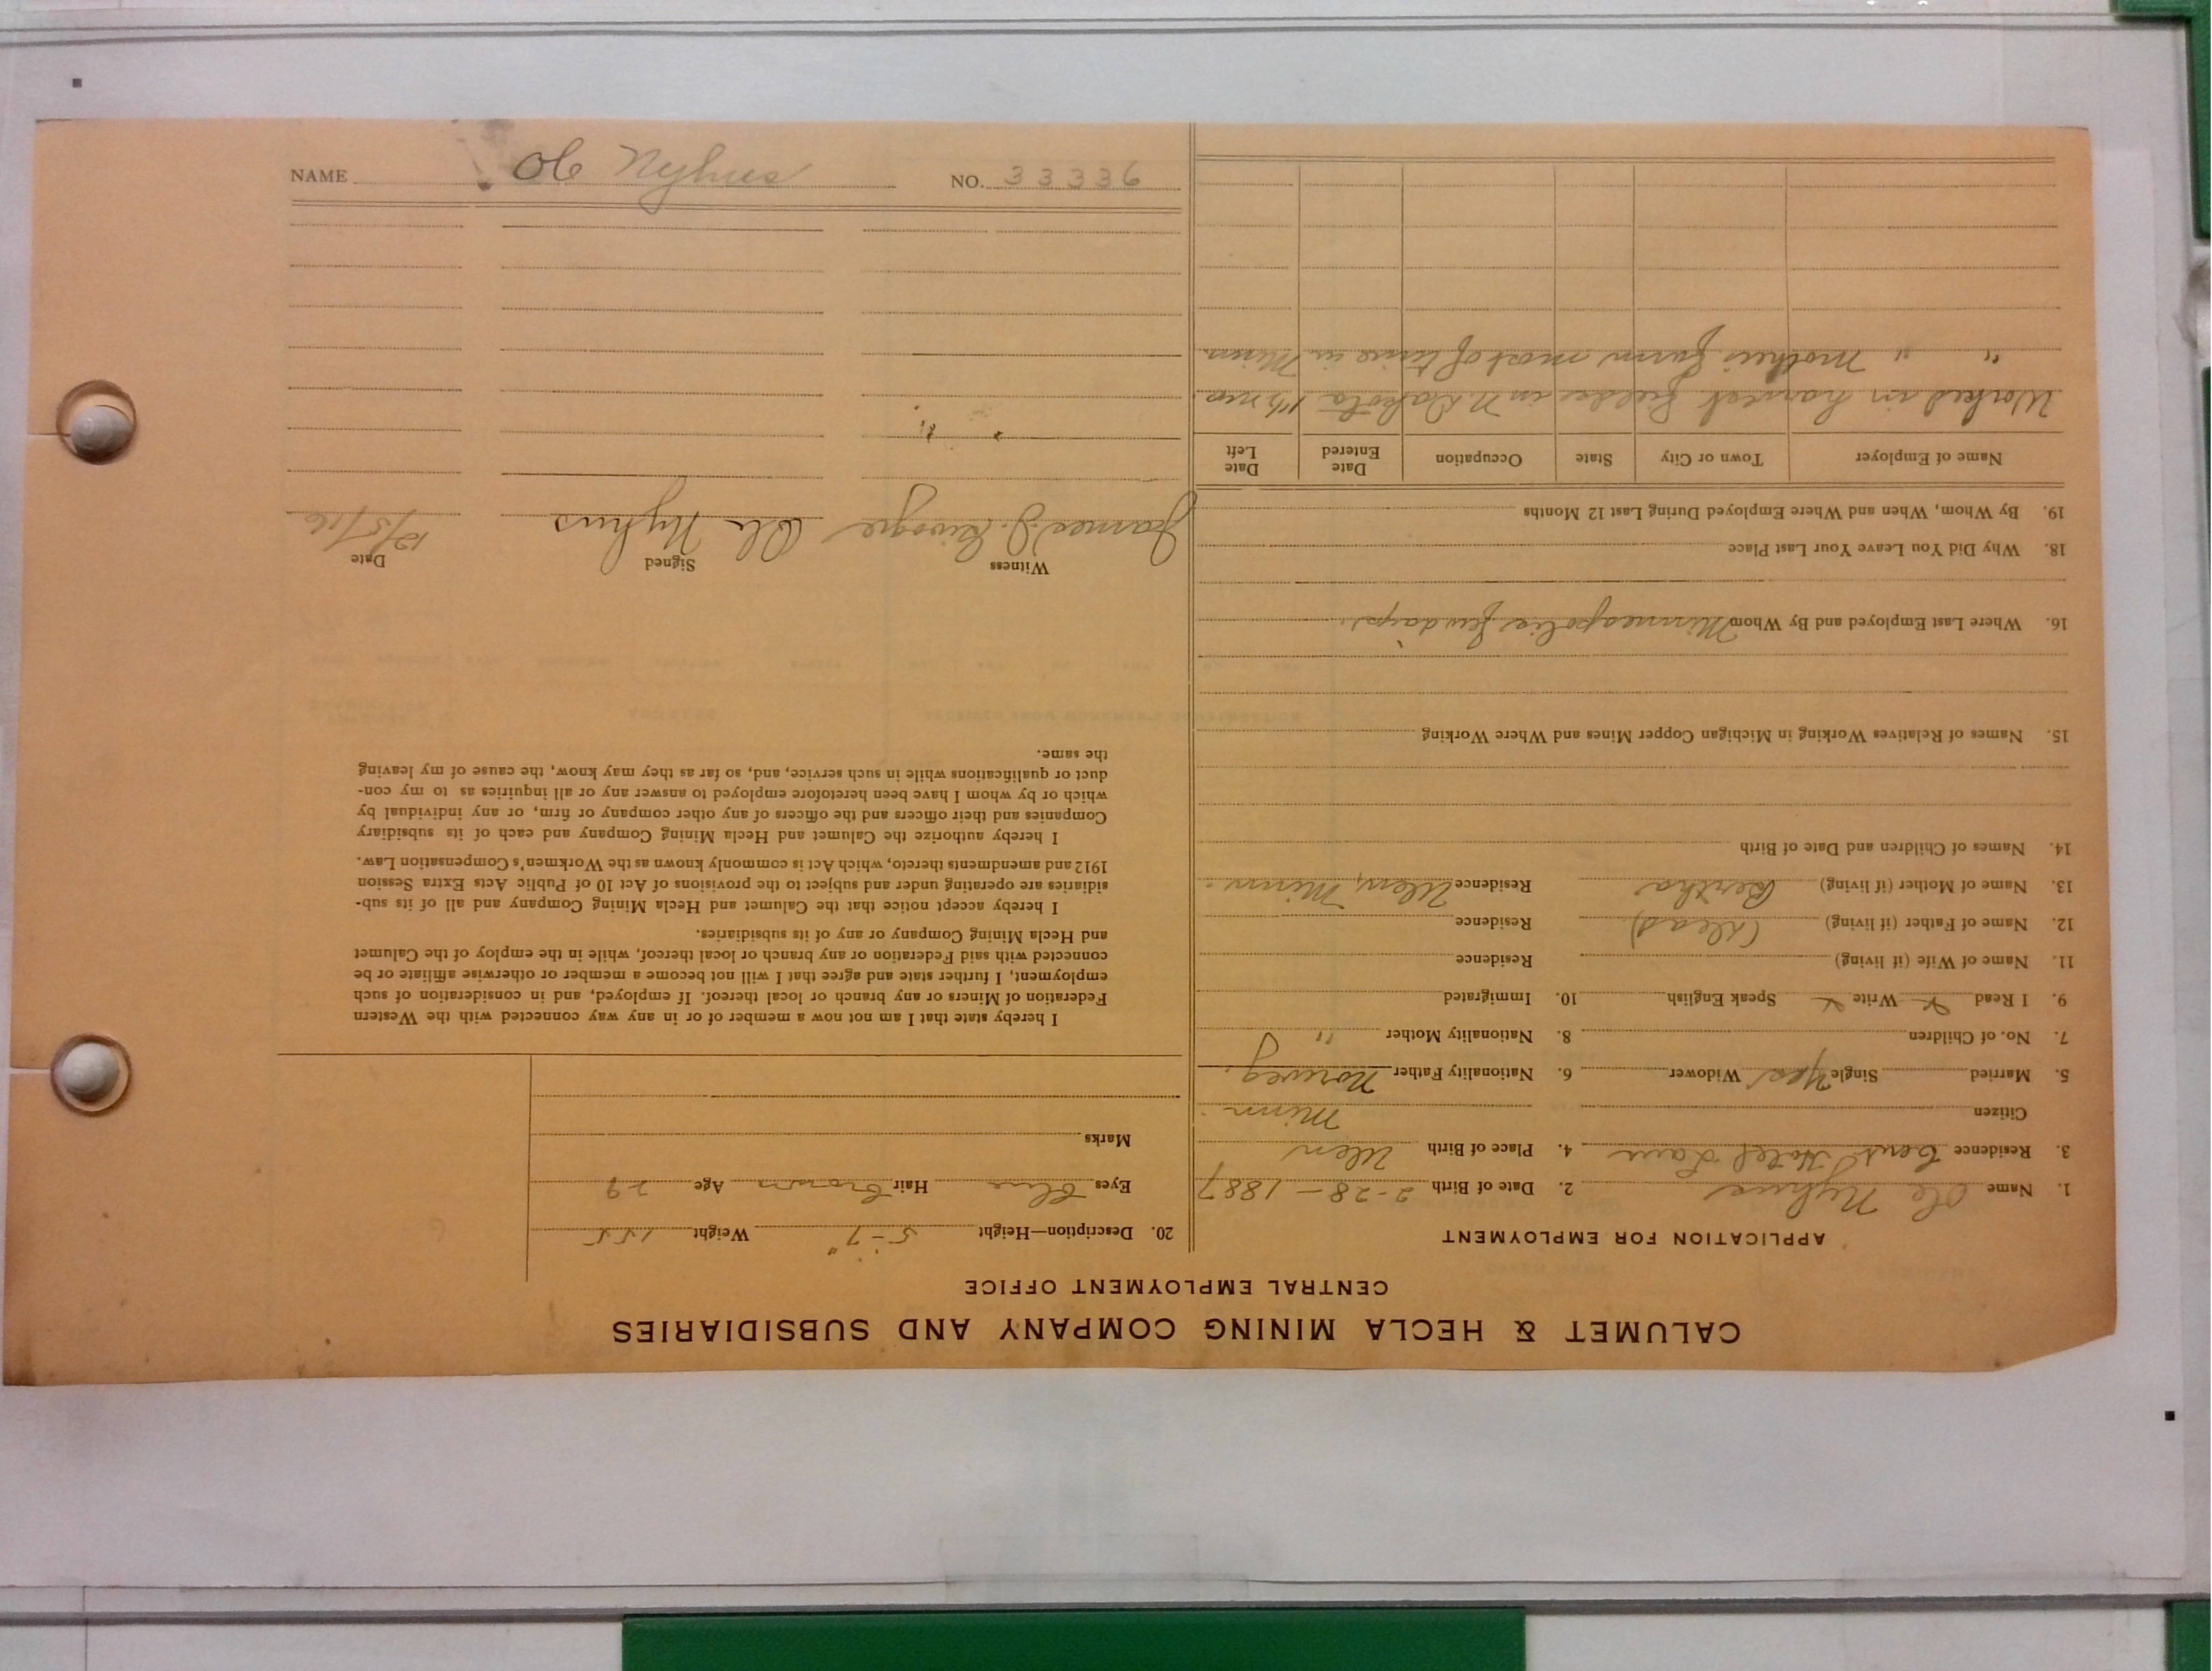 CALUMET & HECLA MINING COMPANY AND SUBSIDIARIES
CENTRAL EMPLOYMENT OFFICE
APPLICATION FOR EMPLOYMENT
1. Name Ole Nyhus 2. Date of Birth 2-28-1887
3. Residence Cent. Hotel Laur 4. Place of Birth Ulen
Citizen Minn
5. Married Single Yes Widower 6. Nationality Father Norweg.
7. No. of Children 8. Nationality Mother "
9. I Read x Write x Speak English 10. Immigrated
11. Name of Wife (if living) Residence
12. Name of Father (if living) (dead) Residence
13. Name of Mother (if living) Bertha Residence Ulen, Minn.
14. Names of Children and Date of Birth
15. Names of Relatives Working in Michigan Copper Mines and Where Working
16. Where Last Employed and By Whom Minneapolis few days.
18. Why Did You Leave Your Last Place
19. By Whom, When and Where Employed During Last 12 Months
Name of Employer Town or City State Occupation Date Entered Date Left
Worked in harvest fields in N Dakota 1½ mos
" " mothers farm most of time in Minn
20. Description—Height 5-7" Weight 155
Eyes blue Hair brown Age 29
Marks
I hereby state that I am not now a member of or in any way connected with the Western
Federation of Miners or any branch or local thereof. If employed, and in consideration of such
employment, I further state and agree that I will not become a member or otherwise affiliate or be
connected with said Federation or any branch or local thereof, while in the employ of the Calumet
and Hecla Mining Company or any of its subsidiaries.
I hereby accept notice that the Calumet and Hecla Mining Company and all of its sub-
sidiaries are operating under and subject to the provisions of Act 10 of Public Acts Extra Session
1912 and amendments thereto, which Act is commonly known as the Workmen's Compensation Law.
I hereby authorize the Calumet and Hecla Mining Company and each of its subsidiary
Companies and their officers and the officers of any other company or firm, or any individual by
which or by whom I have been heretofore employed to answer any or all inquiries as to my con-
duct or qualifications while in such service, and, so far as they may know, the cause of my leaving
the same.
Witness Signed Date
James J. Ole Nyhus 12/5/16
NAME Ole Nyhus NO. 33336